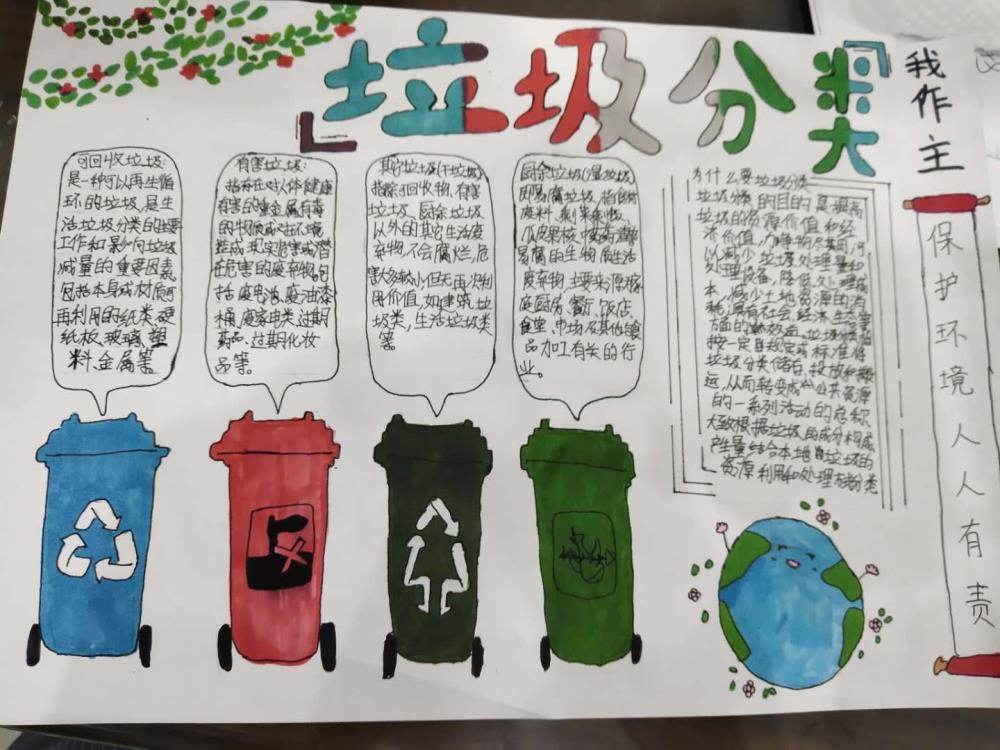 『垃圾分类』
我作主
可回收垃圾:
是一种可以再生循
环的垃圾,是生
活垃圾分类的主要
工作和影响垃圾
减量的重要因素
包括本身或材质可
再利用的纸类、硬
纸板、玻璃、塑
料、金属等
有害垃圾:
指存在对人体健康
有害的重金属有毒
的物质或对环境
造成现实危害或潜
在危害的废弃物包
括废电池、废油漆
桶、废家电类、过期
药品、过期化妆
品等。
其它垃圾(干垃圾)
指除可回收物、有害
垃圾、厨余垃圾
以外的其它生活废
弃物,不会腐烂,危
害大多较小但无再次利
用价值,如建筑垃
圾类,生活垃圾类
等。
厨余垃圾(湿垃圾)
即易腐垃圾,指食材
废料、剩菜剩饭、
瓜皮果核、中药药渣等
易腐的生物质生活
废弃物,主要来源家
庭厨房、餐厅、饭店、
食堂、市场及其他食
品加工有关的行
业。
为什么要垃圾分类
垃圾分类的目的是提高
垃圾的资源价值和经
济价值,力争物尽其用,可
以减少垃圾处理量和
处理设备,降低处理成
本,减少土地资源的消
耗,具有社会、经济、生态等
方面的效益,垃圾分类指
按一定规定或标准将
垃圾分类储存、投放和搬
运,从而转变成公共资源
的一系列活动的总称,
大致根据垃圾的成分构成
产生量,结合本地垃圾的
资源利用和处理方式分类
保护环境人人有责